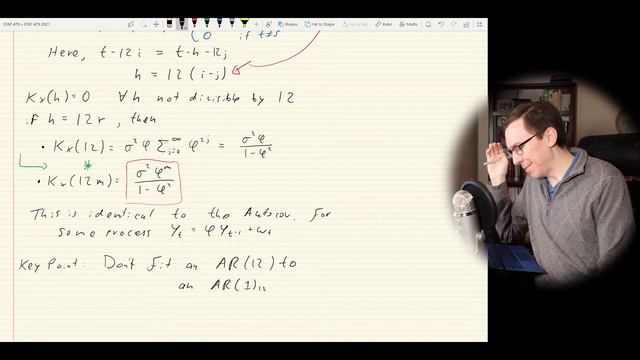 STAT 479 STAT 479 2021
Shapes Ink to Shape Ink to Math Ruler Maths
0 if t≠s
Here, t-12i = t-h-12j
h = 12(i-j)
Kx(h)=0 ∀h not divisible by 12
if h = 12r, then
• Kx(12) = σ²φ Σ_{i=0}^∞ φ^{2j} = σ²φ / 1-φ²
*
• Kx(12m) = σ²φ^m / 1-φ²
This is identical to the Autocov. For
some process Yt = φYt-1 + wt
Key Point: Don't Fit an AR(12) to
an AR(1)₁₂